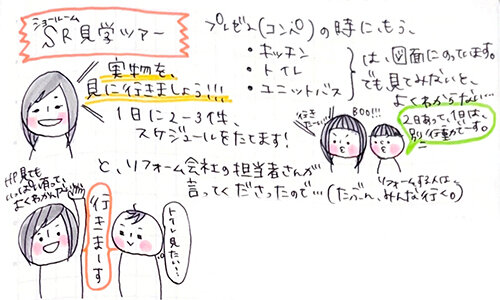 ショールーム
SR見学ツアー
プレゼン(コンペ)の時に、もう、
・キッチン
・トイレ
・ユニットバス
は、図面にのっています。
でも見てみないと、
よくわからない…
実物を、
見に行きましょう!!!
1日に2〜3件、
スケジュールをたてます!
行きたーい!
BOO!!!
2日あって、1日は、
別行動でーす。
と、リフォーム会社の担当者さんが
言ってくださったので…
(たぶん、リフォームする人は、みんな行く。)
HP見ても
いっぱい有って
よくわかんないが
行きまーす
トイレ見たい…